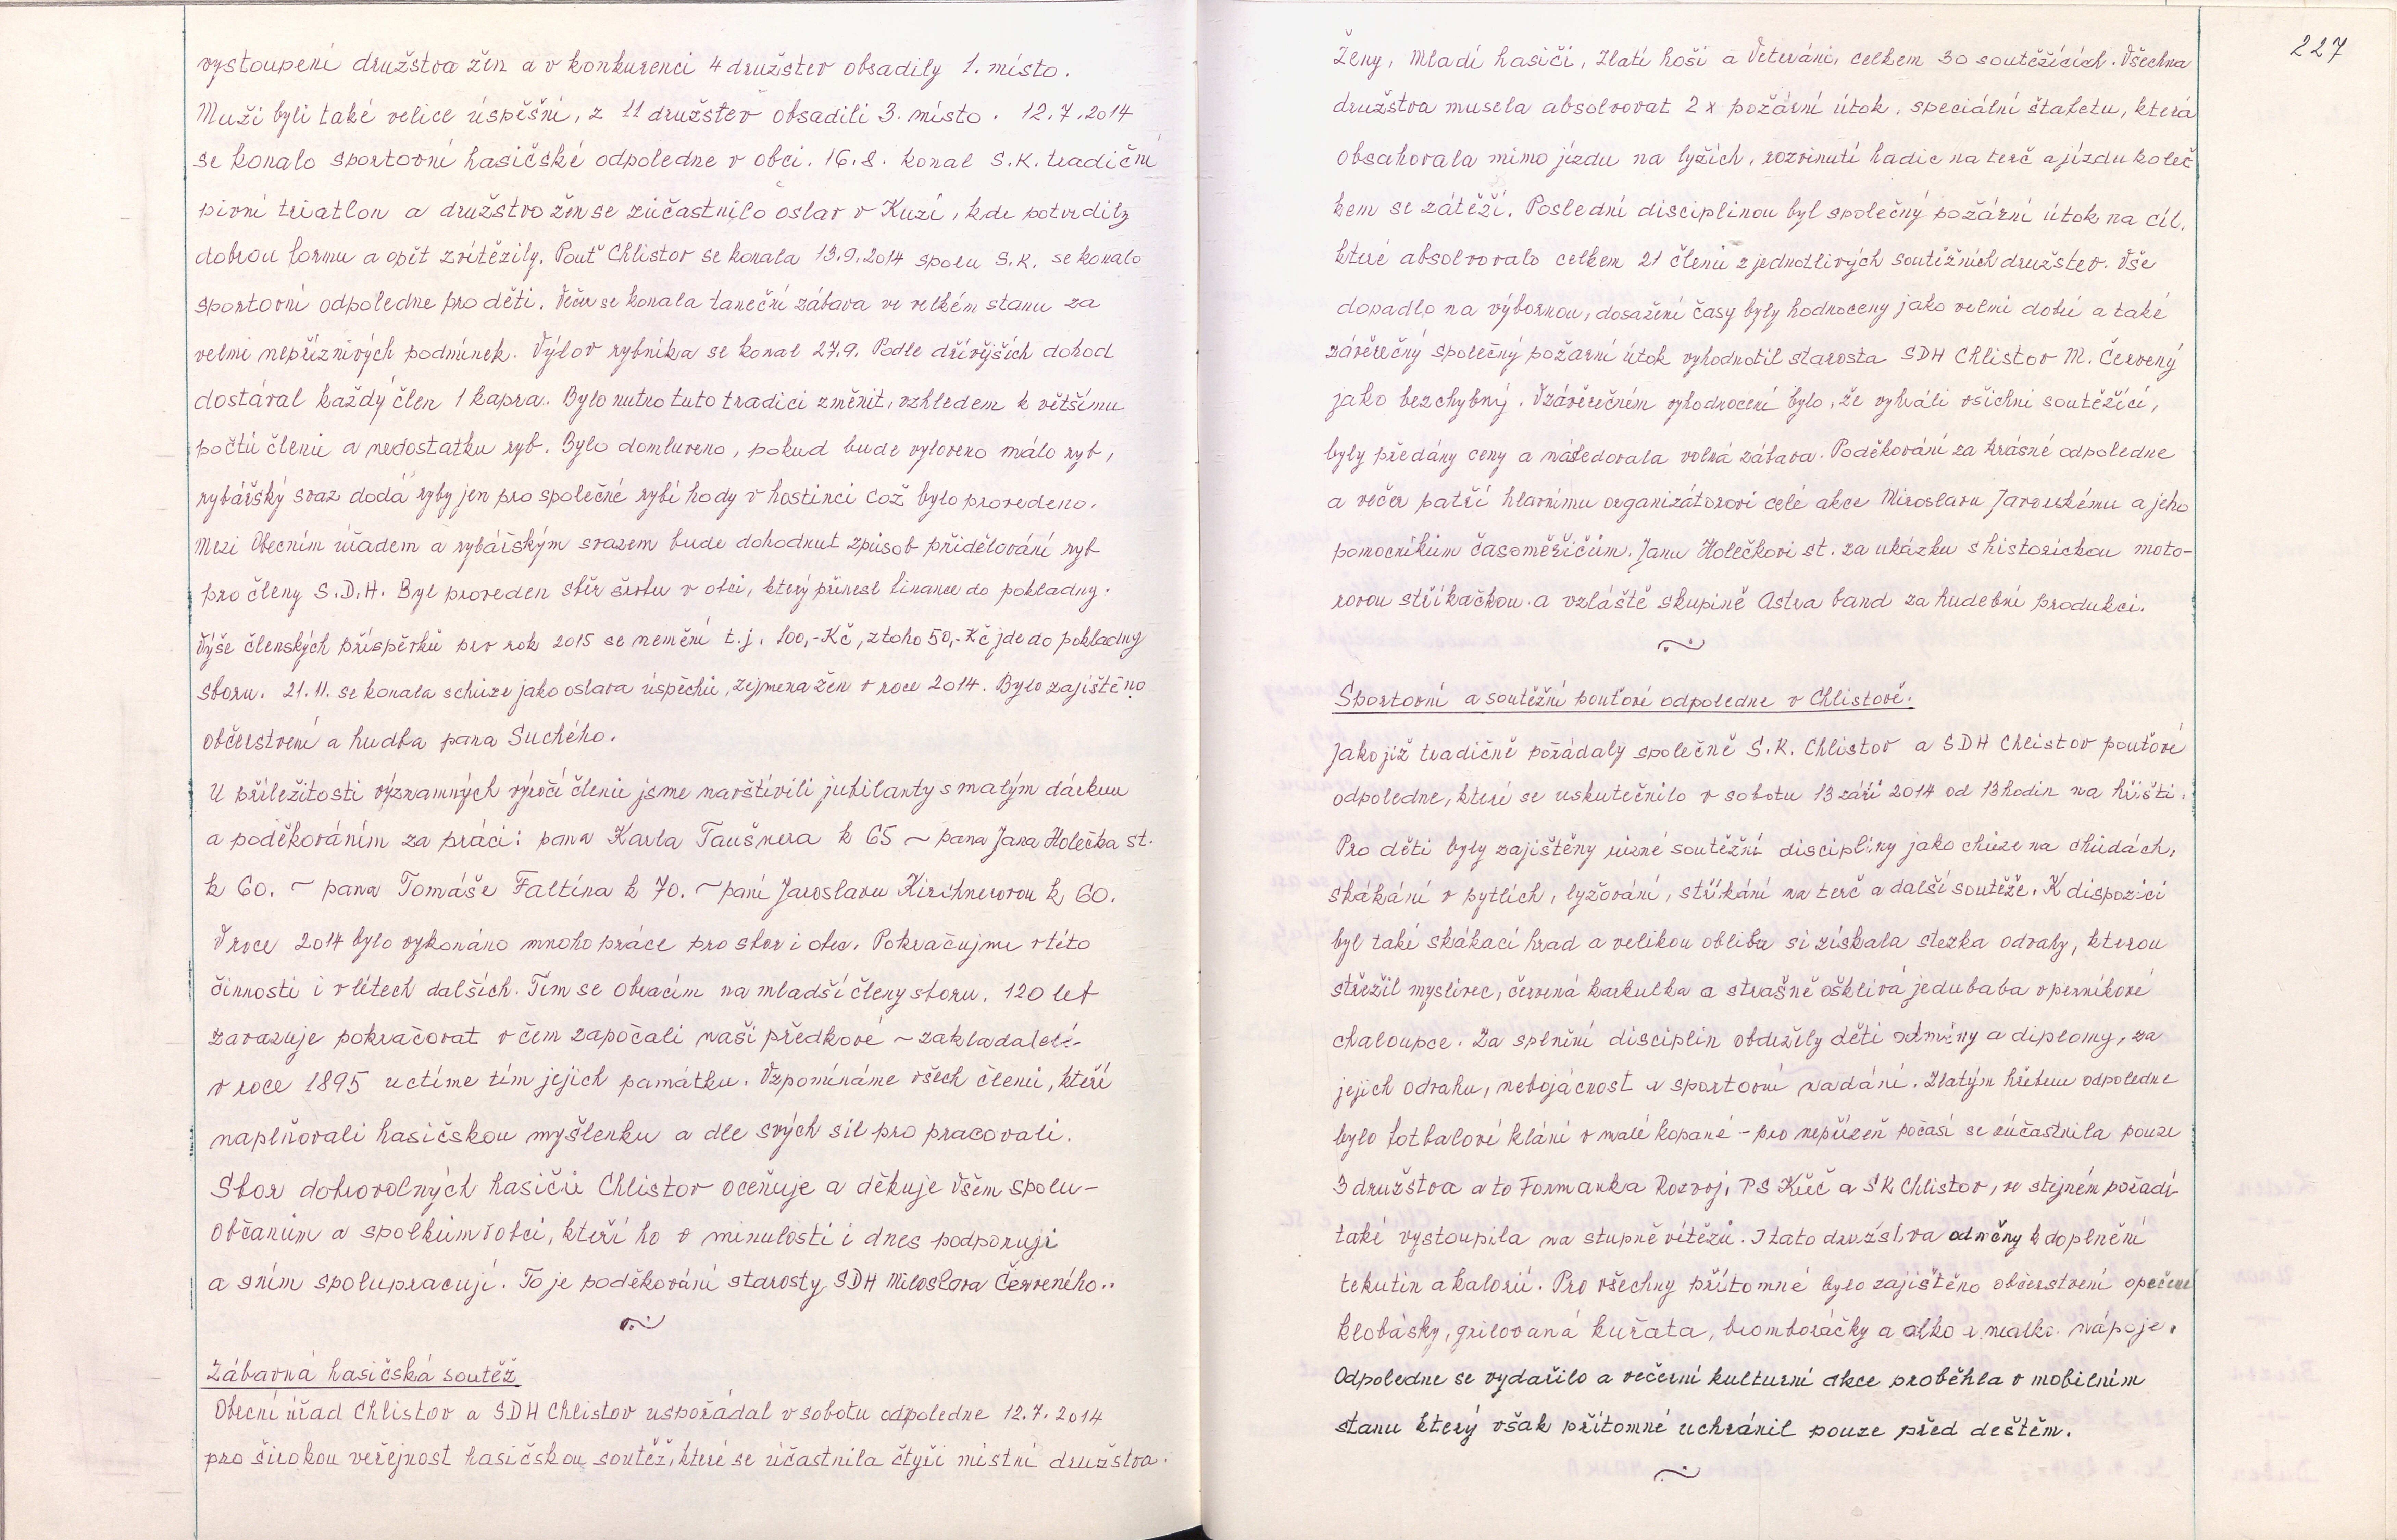 vystoupení družstva žen a v konkurenci 4 družstev obsadily 1. místo.
Muži byli také velice úspěšní, z 11 družstev obsadili 3. místo. 12.7.2014
se konalo sportovní hasičské odpoledne v obci. 16.8. konal S.K. tradiční
pivní triatlon a družstvo žen se zúčastnilo oslav v Kuzí, kde potvrdily
dobrou formu a opět zvítězily. Pouť Chlistov se konala 13.9.2014 spolu S.K. se konalo
sportovní odpoledne pro děti. Večer se konala taneční zábava ve velkém stanu za
velmi nepříznivých podmínek. Výlov rybníka se konal 27.9. Podle dřívějších dohod
dostával každý člen 1 kapra. Bylo nutno tuto tradici změnit, vzhledem k většímu
počtu členů a nedostatku ryb. Bylo domluveno, pokud bude vyloveno málo ryb,
rybářský svaz dodá ryby jen pro společné rybí hody v hostinci což bylo provedeno.
Mezi Obecním úřadem a rybářským svazem bude dohodnut způsob přidělování ryb
pro členy S.D.H. Byl proveden sběr šrotu v obci, který přinesl finance do pokladny.
Výše členských příspěvků pro rok 2015 se nemění t.j. 100,-Kč, z toho 50,-Kč jde do pokladny
sboru. 21.11. se konala schůze jako oslava úspěchů, zejmena žen v roce 2014. Bylo zajištěno
občerstvení a hudba pana Suchého.
U příležitosti významných výročí členů jsme navštívili jubilanty s malým dárkem
a poděkováním za práci: pana Karla Taušnera k 65 ~ pana Jana Holečka st.
k 60. ~ pana Tomáše Faltína k 70. ~ paní Jaroslavu Kirchnerovou k 60.
V roce 2014 bylo vykonáno mnoho práce pro sbor i obec. Pokračujme v této
činnosti i v létech dalších. Tím se obracím na mladší členy sboru. 120 let
zavazuje pokračovat v čem započali naši předkové ~ zakladatelé.-
v roce 1895 uctíme tím jejich památku. Vzpomínáme všech členů, kteří
naplňovali hasičskou myšlenku a dle svých sil pro pracovali.
Sbor dobrovolných hasičů Chlistov oceňuje a děkuje všem spolu-
občanům a spolkům v obci, kteří ho v minulosti i dnes podporují
a sním spolupracují. To je poděkování starosty SDH Miloslava Červeného..
Zábavná hasičská soutěž
Obecní úřad Chlistov a SDH Chlistov uspořádal v sobotu odpoledne 12.7.2014
pro širokou veřejnost hasičskou soutěž, které se účastnila čtyři místní družstva.
227
Ženy, Mladí hasiči, Zlatí hoši a Veteráni, celkem 30 soutěžících. Všechna
družstva musela absolvovat 2x požární útok, speciální štafetu, která
obsahovala mimo jízdu na lyžích, rozvinutí hadic na terč a jízdu koleč
kem se zátěží. Poslední disciplinou byl společný požární útok na cíl,
které absolvovalo celkem 21 členů z jednotlivých soutěžních družstev. Vše
dopadlo na výbornou, dosažené časy byly hodnoceny jako velmi dobré a také
závěrečný společný požární útok vyhodnotil starosta SDH Chlistov M. Červený
jako bezchybný. V závěrečném vyhodnocení bylo, že vyhráli všichni soutěžící,
byly předány ceny a následovala volná zábava. Poděkování za krásné odpoledne
a večer patří hlavnímu organizátorovi celé akce Miroslavu Javorskému a jeho
pomocníkům časoměřičům. Janu Holečkovi st. za ukázku s historickou moto-
rovou stříkačkou a vzláště skupině Astra band za hudební produkci.
Sportovní a soutěžní pouťové odpoledne v Chlistově.
Jako již tradičně pořádaly společně S.K. Chlistov a SDH Chlistov pouťové
odpoledne, které se uskutečnilo v sobotu 13 září 2014 od 13 hodin na hřišti.
Pro děti byly zajištěny různé soutěžní disciplíny jako chůze na chůdách,
skákání v pytlích, lyžování, stříkání na terč a další soutěže. K dispozici
byl také skákací hrad a velikou oblibu si získala stezka odvahy, kterou
střežil myslivec, červená karkulka a strašně ošklivá jedubaba v perníkové
chaloupce. Za splnění disciplin obdržely děti odměny a diplomy, za
jejich odvahu, nebojácnost a sportovní nadání. Zlatým hřebem odpoledne
bylo fotbalové klání v malé kopané - pro nepřízeň počasí se zúčastnila pouze
3 družstva a to Formanka Rozvoj, PS Křč a SK Chlistov, ve stejném pořadí
také vystoupila na stupně vítězů. I tato družstva odměny k doplnění
tekutin a kalorií. Pro všechny přítomné bylo zajištěno občerstvení opečené
klobásky, grilovaná kuřata, bromboráčky a alko i nealko. nápoje.
Odpoledne se vydařilo a večerní kulturní akce proběhla v mobilním
stanu který však přítomné uchránil pouze před deštěm.